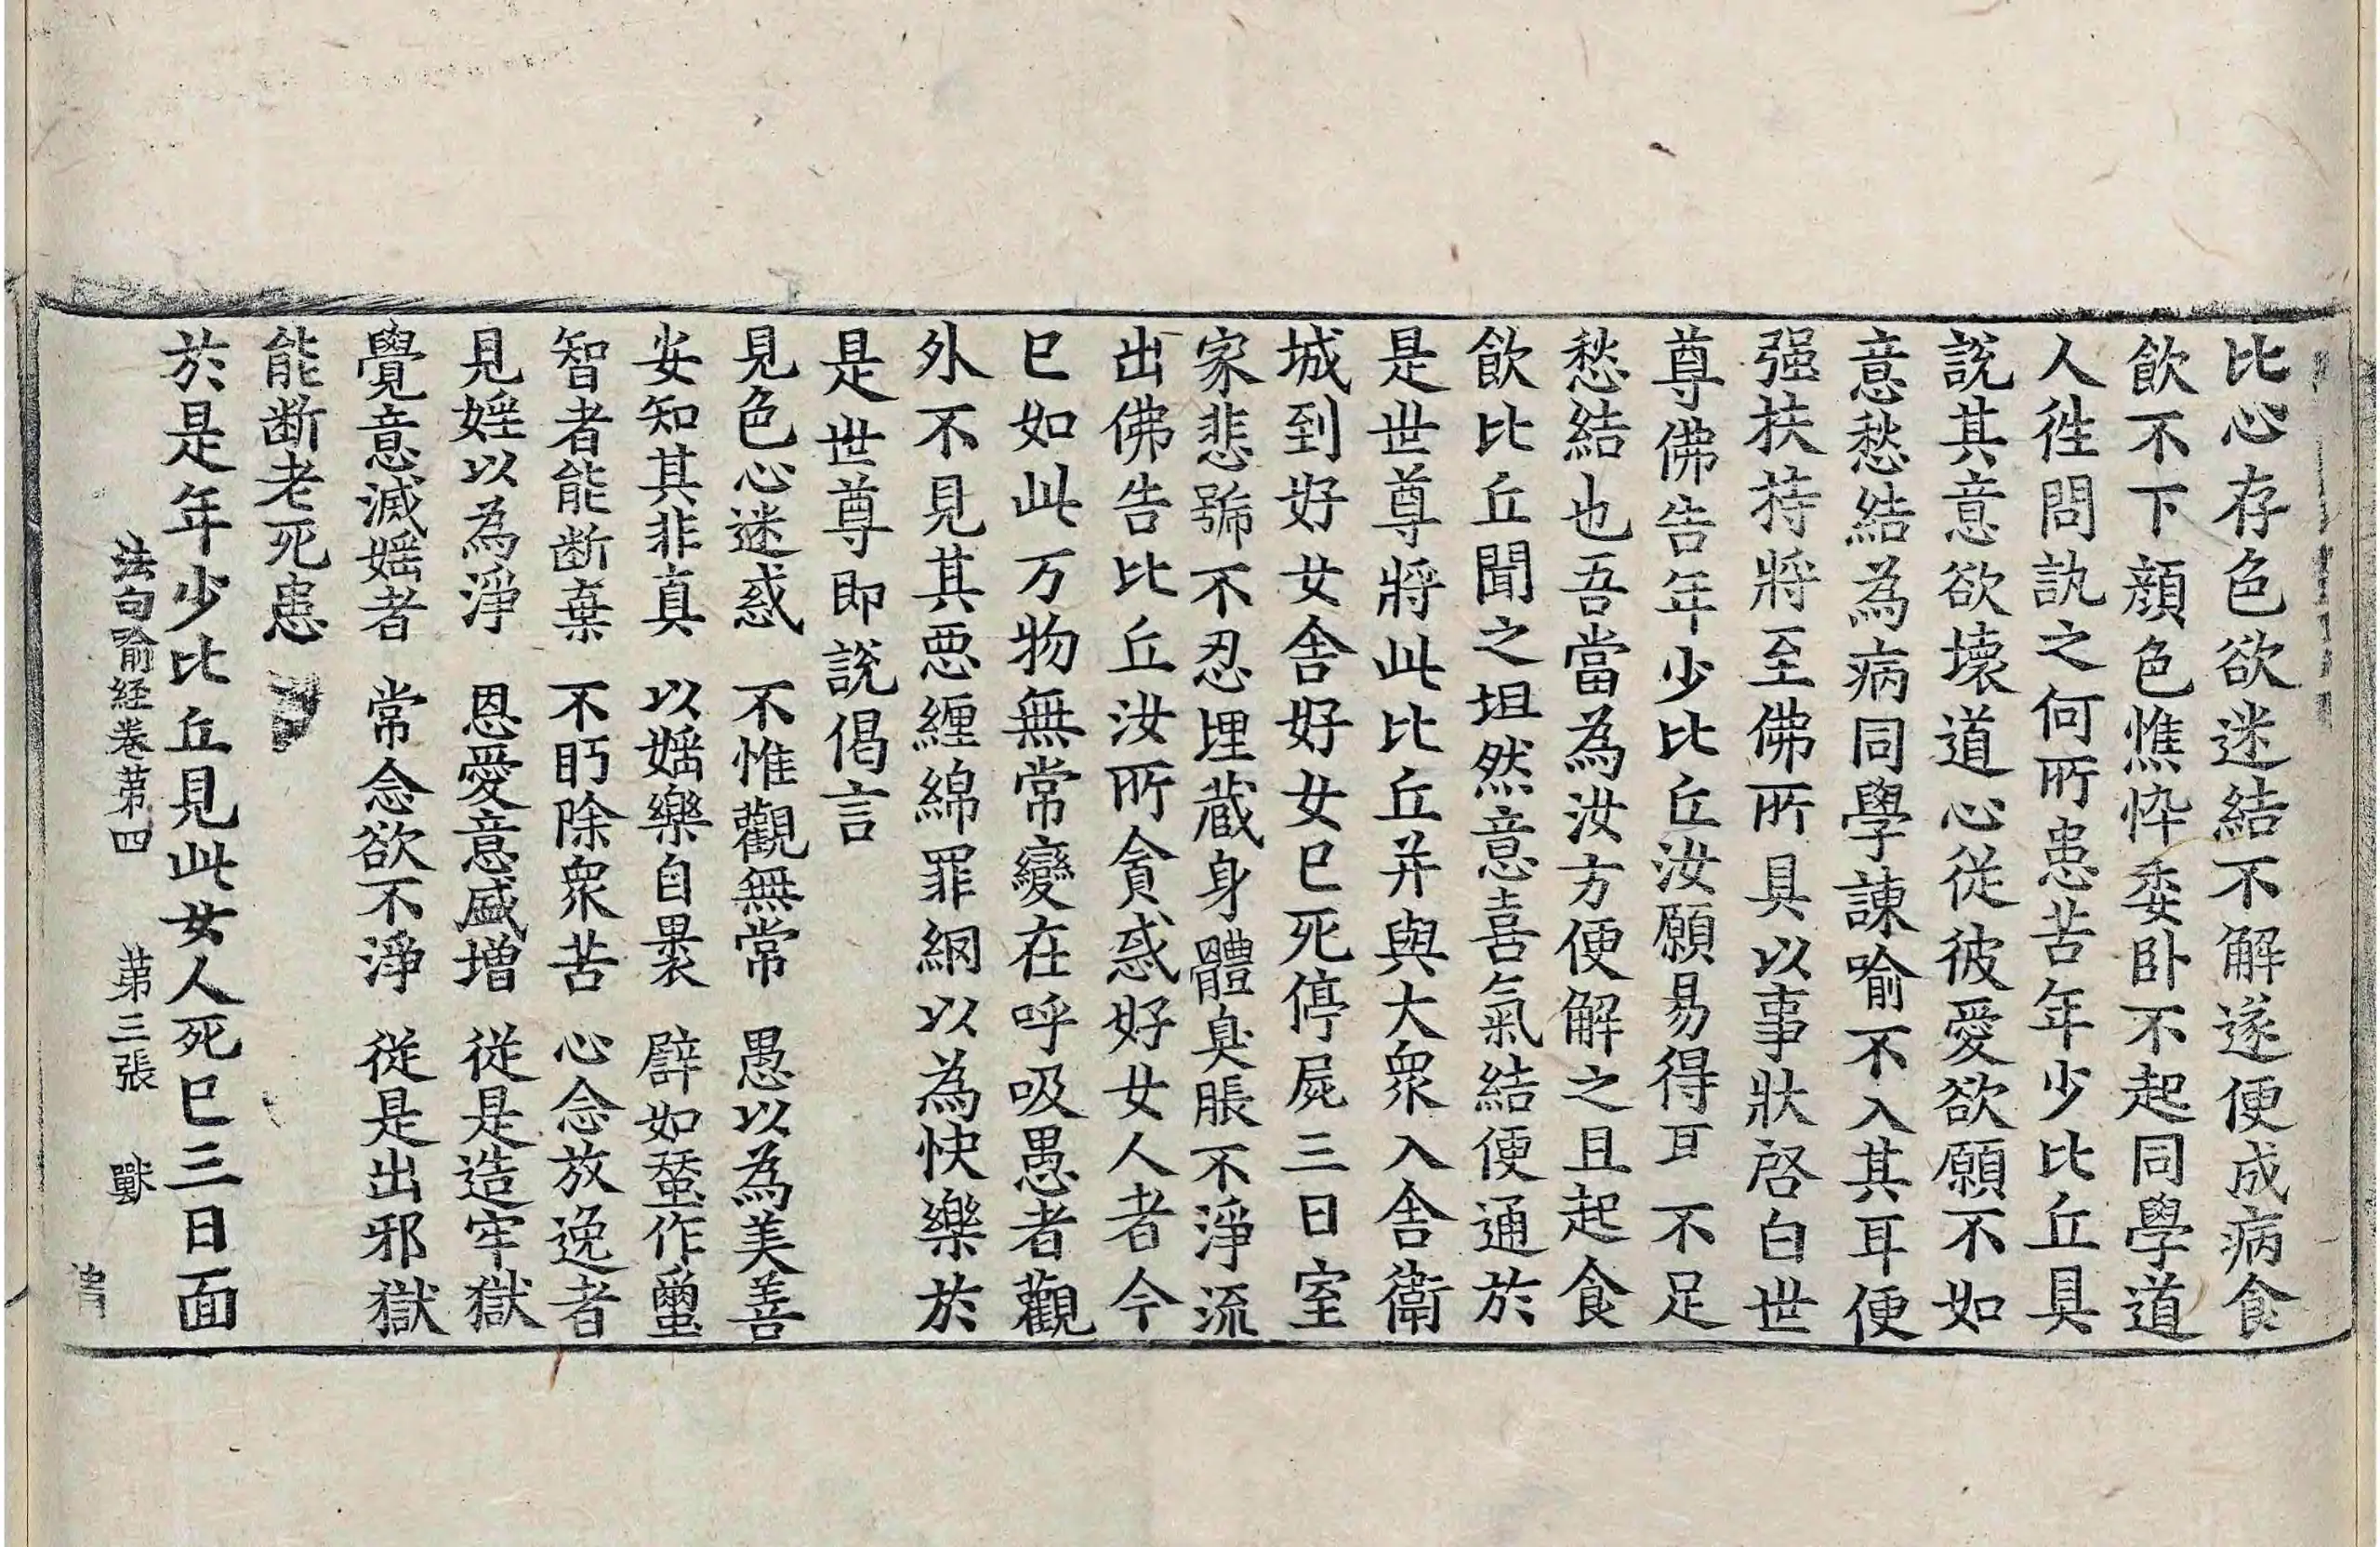 比心存色欲迷結不解遂便成病食
飲不下顔色憔悴委卧不起同學道
人徃問訊之何所患苦年少比丘具
說其意欲壞道心從彼愛欲願不如
意愁結為病同學諫喻不入其耳便
强扶持將至佛所具以事狀啓白世
尊佛告年少比丘汝願易得耳不足
愁結也吾當為汝方便解之且起食
飲比丘聞之坦然意喜氣結便通於
是世尊將此比丘并與大衆入舎衛
城到好女舎好女已死停屍三日室
家悲號不忍埋蔵身體臭脹不淨流
出佛告比丘汝所貪惑好女人者今
已如此万物無常變在呼吸愚者觀
外不見其惡纏綿罪網以為快樂於
是世尊即說偈言
見色心迷惑 不惟觀無常 愚以為美善
安知其非真 以婬樂自裹 辟如蚕作蠒
智者能断棄 不眄除衆苦 心念放逸者
見婬以為淨 恩愛意盛增 從是造牢獄
覺意滅婬者 常念欲不淨 從是出邪獄
能断老死患
於是年少比丘見此女人死已三日面
法句喻経卷苐四 苐三張 獸